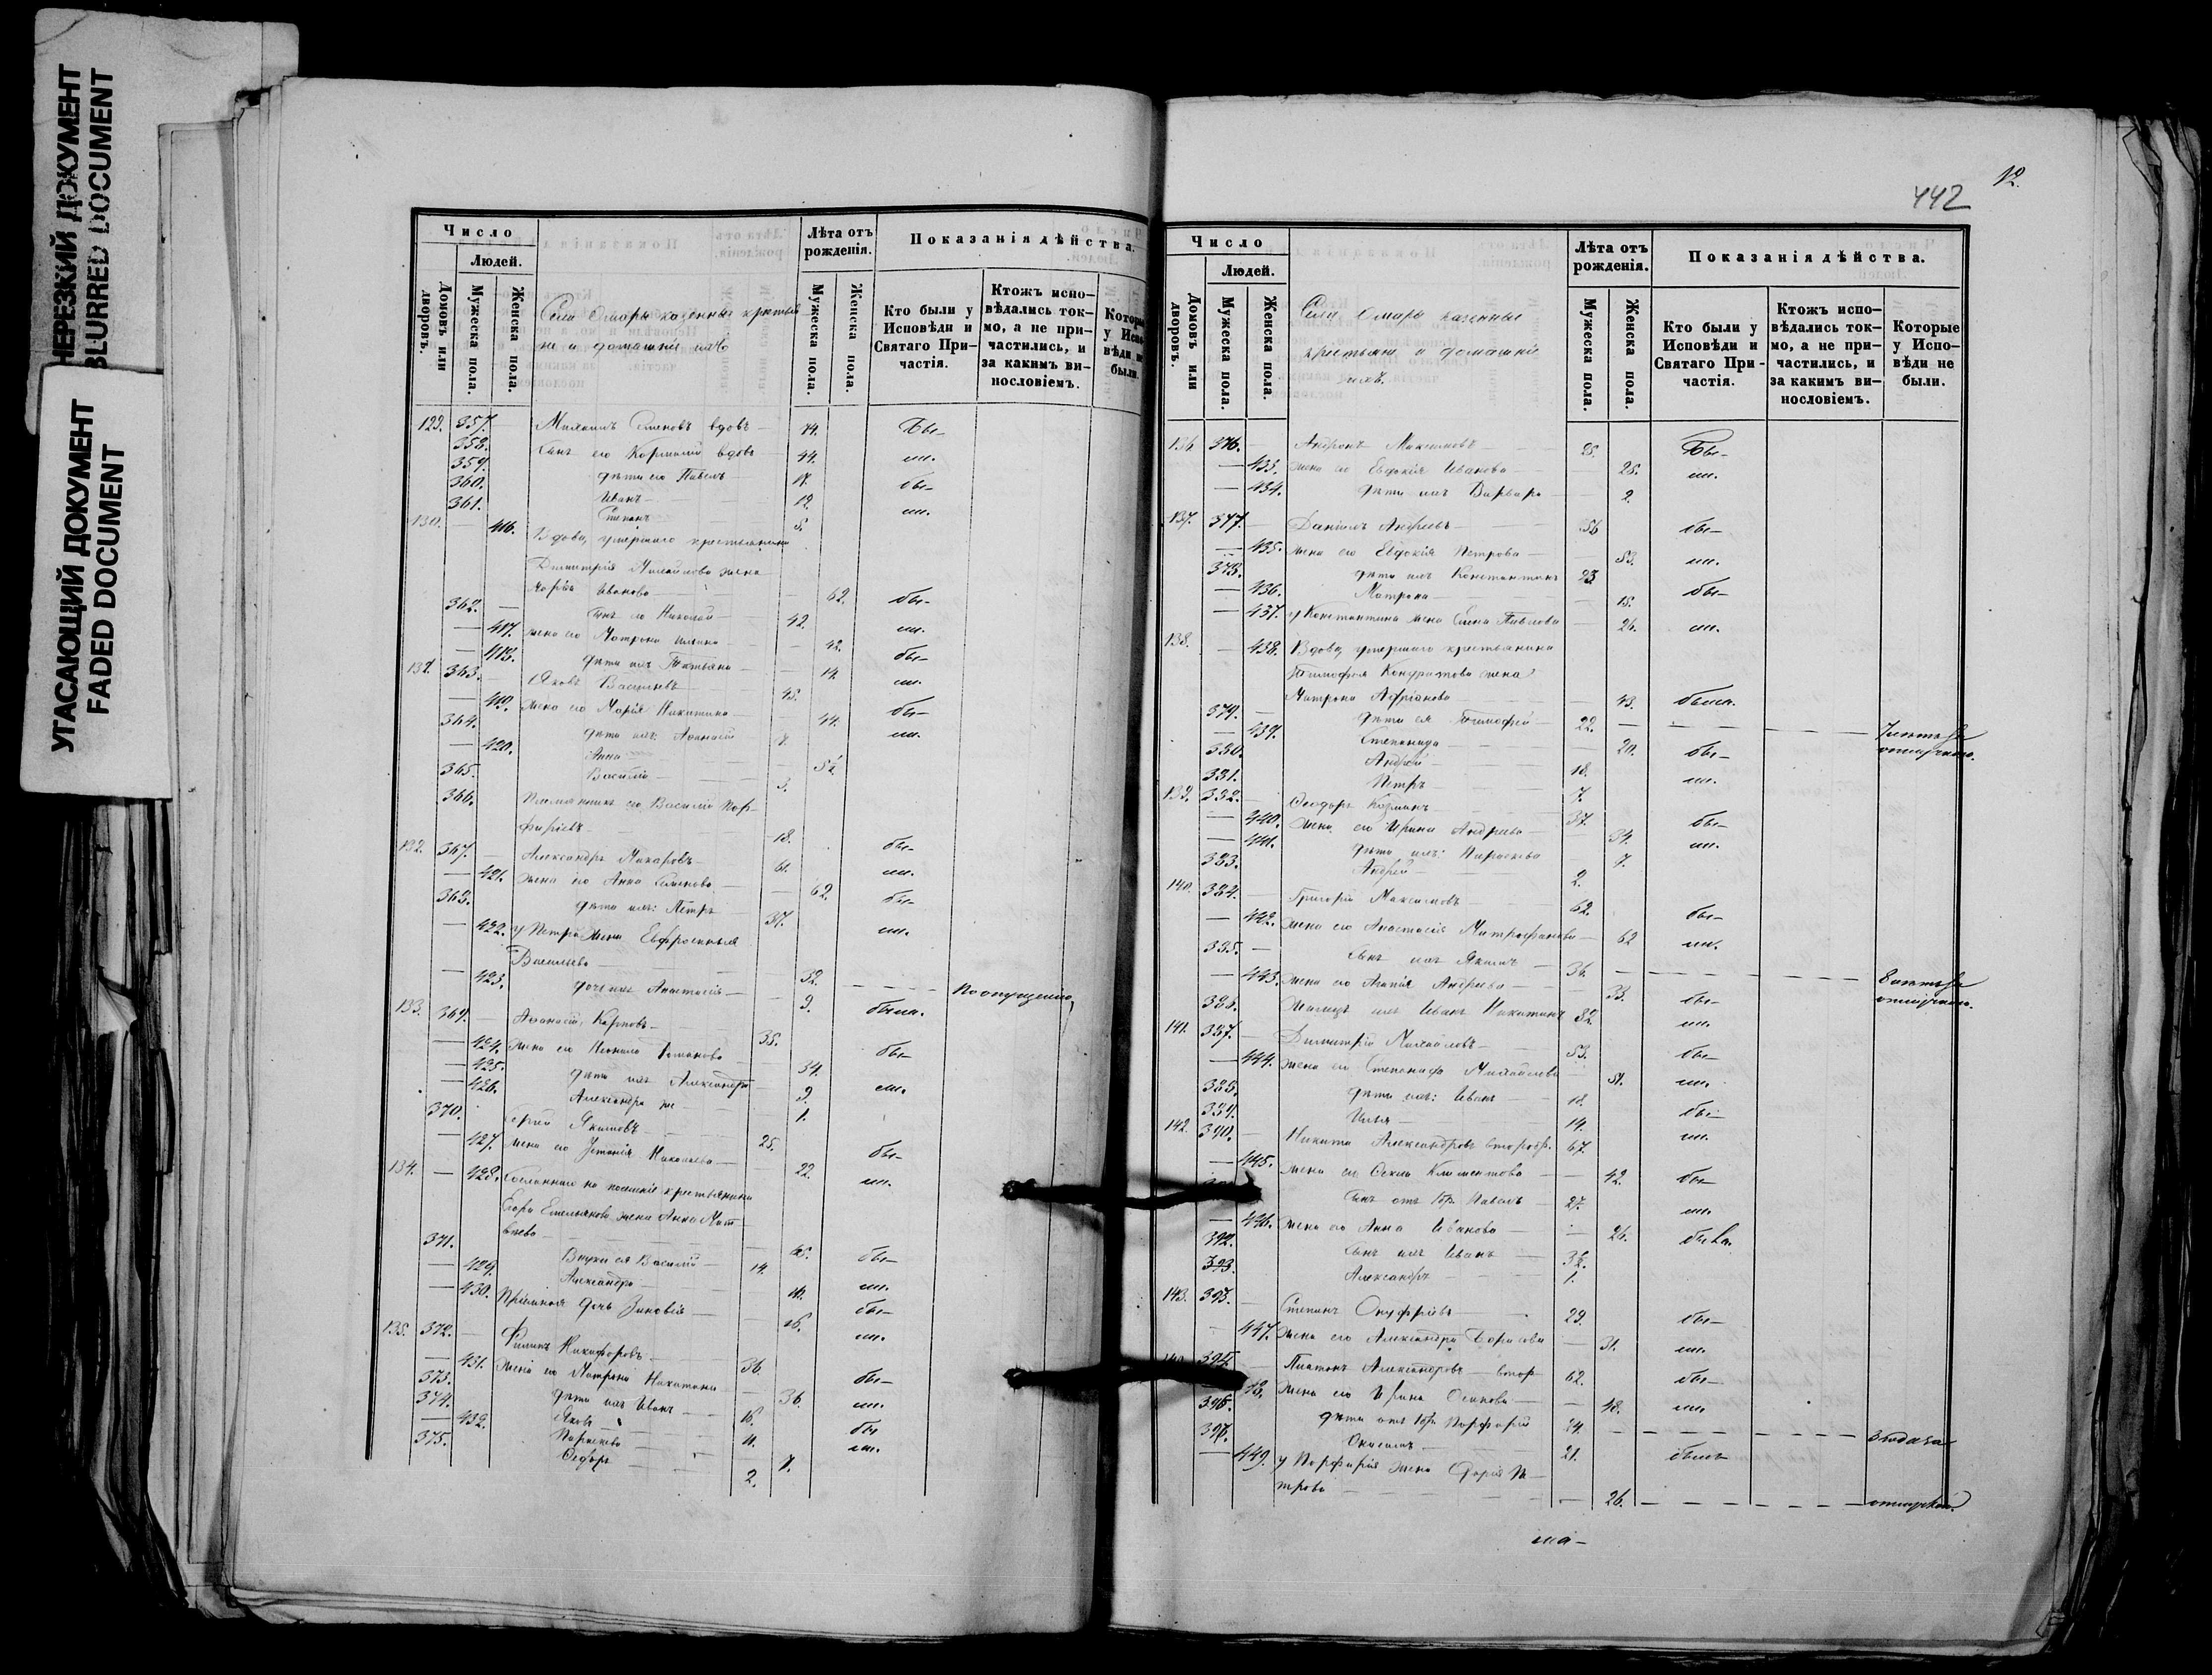 НЕРЕЗКИЙ ДОКУМЕНТ
BLURRED DOCUMENT
УГАСАЮЩИЙ ДОКУМЕНТ
FADED DOCUMENT
Число
Людей.
Домовъ или дворовъ.
Мужеска пола.
Женска пола.
Села Омары казенные крестья
не и домашніе ихъ
Лѣта отъ рожденія.
Мужеска пола.
Женска пола.
Показанія дѣйства.
Кто были у Исповѣди и Святаго Причастія.
Ктожъ исповѣдались токмо, а не причастились, и за какимъ винословіемъ.
Которые у Исповѣди не были.
129. 357. Михаилъ Семеновъ вдовъ 74. бы-
358. Сынъ его вдовъ 44. ли.
359. дѣти его Павелъ 17. бы-
360. Иванъ 12. ли.
361. Степанъ 8.
130. 416. Вдова, умершаго крестьянина
Димитрія Михайлова жена
Марѳа Иванова 62. бы-
362. Сынъ ея Николай 42. ли.
417. жена его Матрона 42. бы-
418. дѣти ихъ Татьяна 14. ли.
131. 363. Яковъ Васильевъ 45. бы-
419. жена его Марія Никитина 44. ли.
364. дѣти ихъ: Аѳанасій 7.
420. Анна
365. Василій 3.
366. Племянникъ его Василій Пор-
фиріевъ 18. бы-
132. 367. Александръ Макаровъ 61. ли.
421. жена его Анна Семенова 62. бы-
368. дѣти ихъ: Петръ 37. ли.
422. у Петра жена Евфросинья
Васильева 32. По опущенію
423. дочь ихъ Анастасія 9. была.
133. 369. Аѳанасій Карповъ 35. бы-
424. жена его Романова 34. ли.
425. дѣти ихъ Александра 9.
426. Александра же 1.
370. Сергій Якимовъ 25. бы-
427. жена его Устинія Николаева 22. ли.
134. 428. Сосланнаго на поселкіе крестьянина
Егора Емельянова жена Анна Мат-
вѣева 65. бы-
371. Внуки ея Василій 14. ли.
429. Александра 11. бы-
430. Пріемная дочь Зиновія 16. ли.
135. 372. Филипъ Никифоровъ 36. бы-
431. жена его Матрона Никитина 36. ли.
373. дѣти ихъ Иванъ 16. бы
374. Яковъ 11. ли.
432. Параскева 7.
375. Ѳедоръ 2.
442
12.
Число
Людей.
Домовъ или дворовъ.
Мужеска пола.
Женска пола.
Села Омары казенные
крестьяне и домашніе
ихъ.
Лѣта отъ рожденія.
Мужеска пола.
Женска пола.
Показанія дѣйства.
Кто были у Исповѣди и Святаго Причастія.
Ктожъ исповѣдались токмо, а не причастились, и за какимъ винословіемъ.
Которые у Исповѣди не были.
136. 376. Андронъ Максимовъ 25. бы-
433. жена его Евдокія Иванова 25. ли.
434. дѣти ихъ Варвара 2.
137. 377. Даніилъ Андреевъ 56 бы-
435. жена его Евдокія Петрова 53. ли.
378. дѣти ихъ Константинъ 23. бы-
436. Матрона 15. ли.
437. у Константина жена Елена Павлова 26.
138. 438. Вдова, умершаго крестьянина
Тимофея Кондратова жена
Матрона Адріанова 43. была.
379. дѣти ея Тимофей 22.
439. Степанида 20. бы-
380. Андрей 18. ли.
381. Петръ 7.
139. 382. Ѳеодоръ 37. бы-
440. жена его Ирина Андреева 34. ли.
441. дѣти ихъ: Параскева 7.
383. Андрей 2.
140. 384. Григорій Максимовъ 62. бы-
442. жена его Анастасія Митрофанова 62 ли.
385. Сынъ ихъ Якимъ 36.
443. жена его Агапія Андреева 33. бы-
386. Иванъ Никитинъ 82. ли.
141. 387. Димитрій Михайловъ 53. бы-
444. жена его Степанида Михайлова 51. ли.
388. дѣти ихъ: Иванъ 18. бы-
389. Илья 14. ли.
142. 390. Никита Александровъ 67.
445. жена его Климентова 42. бы-
Сынъ отъ 1бр. Павелъ 27. ли.
446. жена его Анна Иванова 26. была.
392. Сынъ ихъ Иванъ
393. Александръ 1.
143. 395. Степанъ Онуфріевъ 29. бы-
447. жена его Александра Борисова 31. ли.
394. Платонъ Александровъ втор 62. бы-
жена его Ирина Осипова 48. ли.
396. дѣти отъ 1бр. Порфирій 24.
397. 21. былъ
449. у Порфирія жена Дарія Пе-
трова 26.
ма-